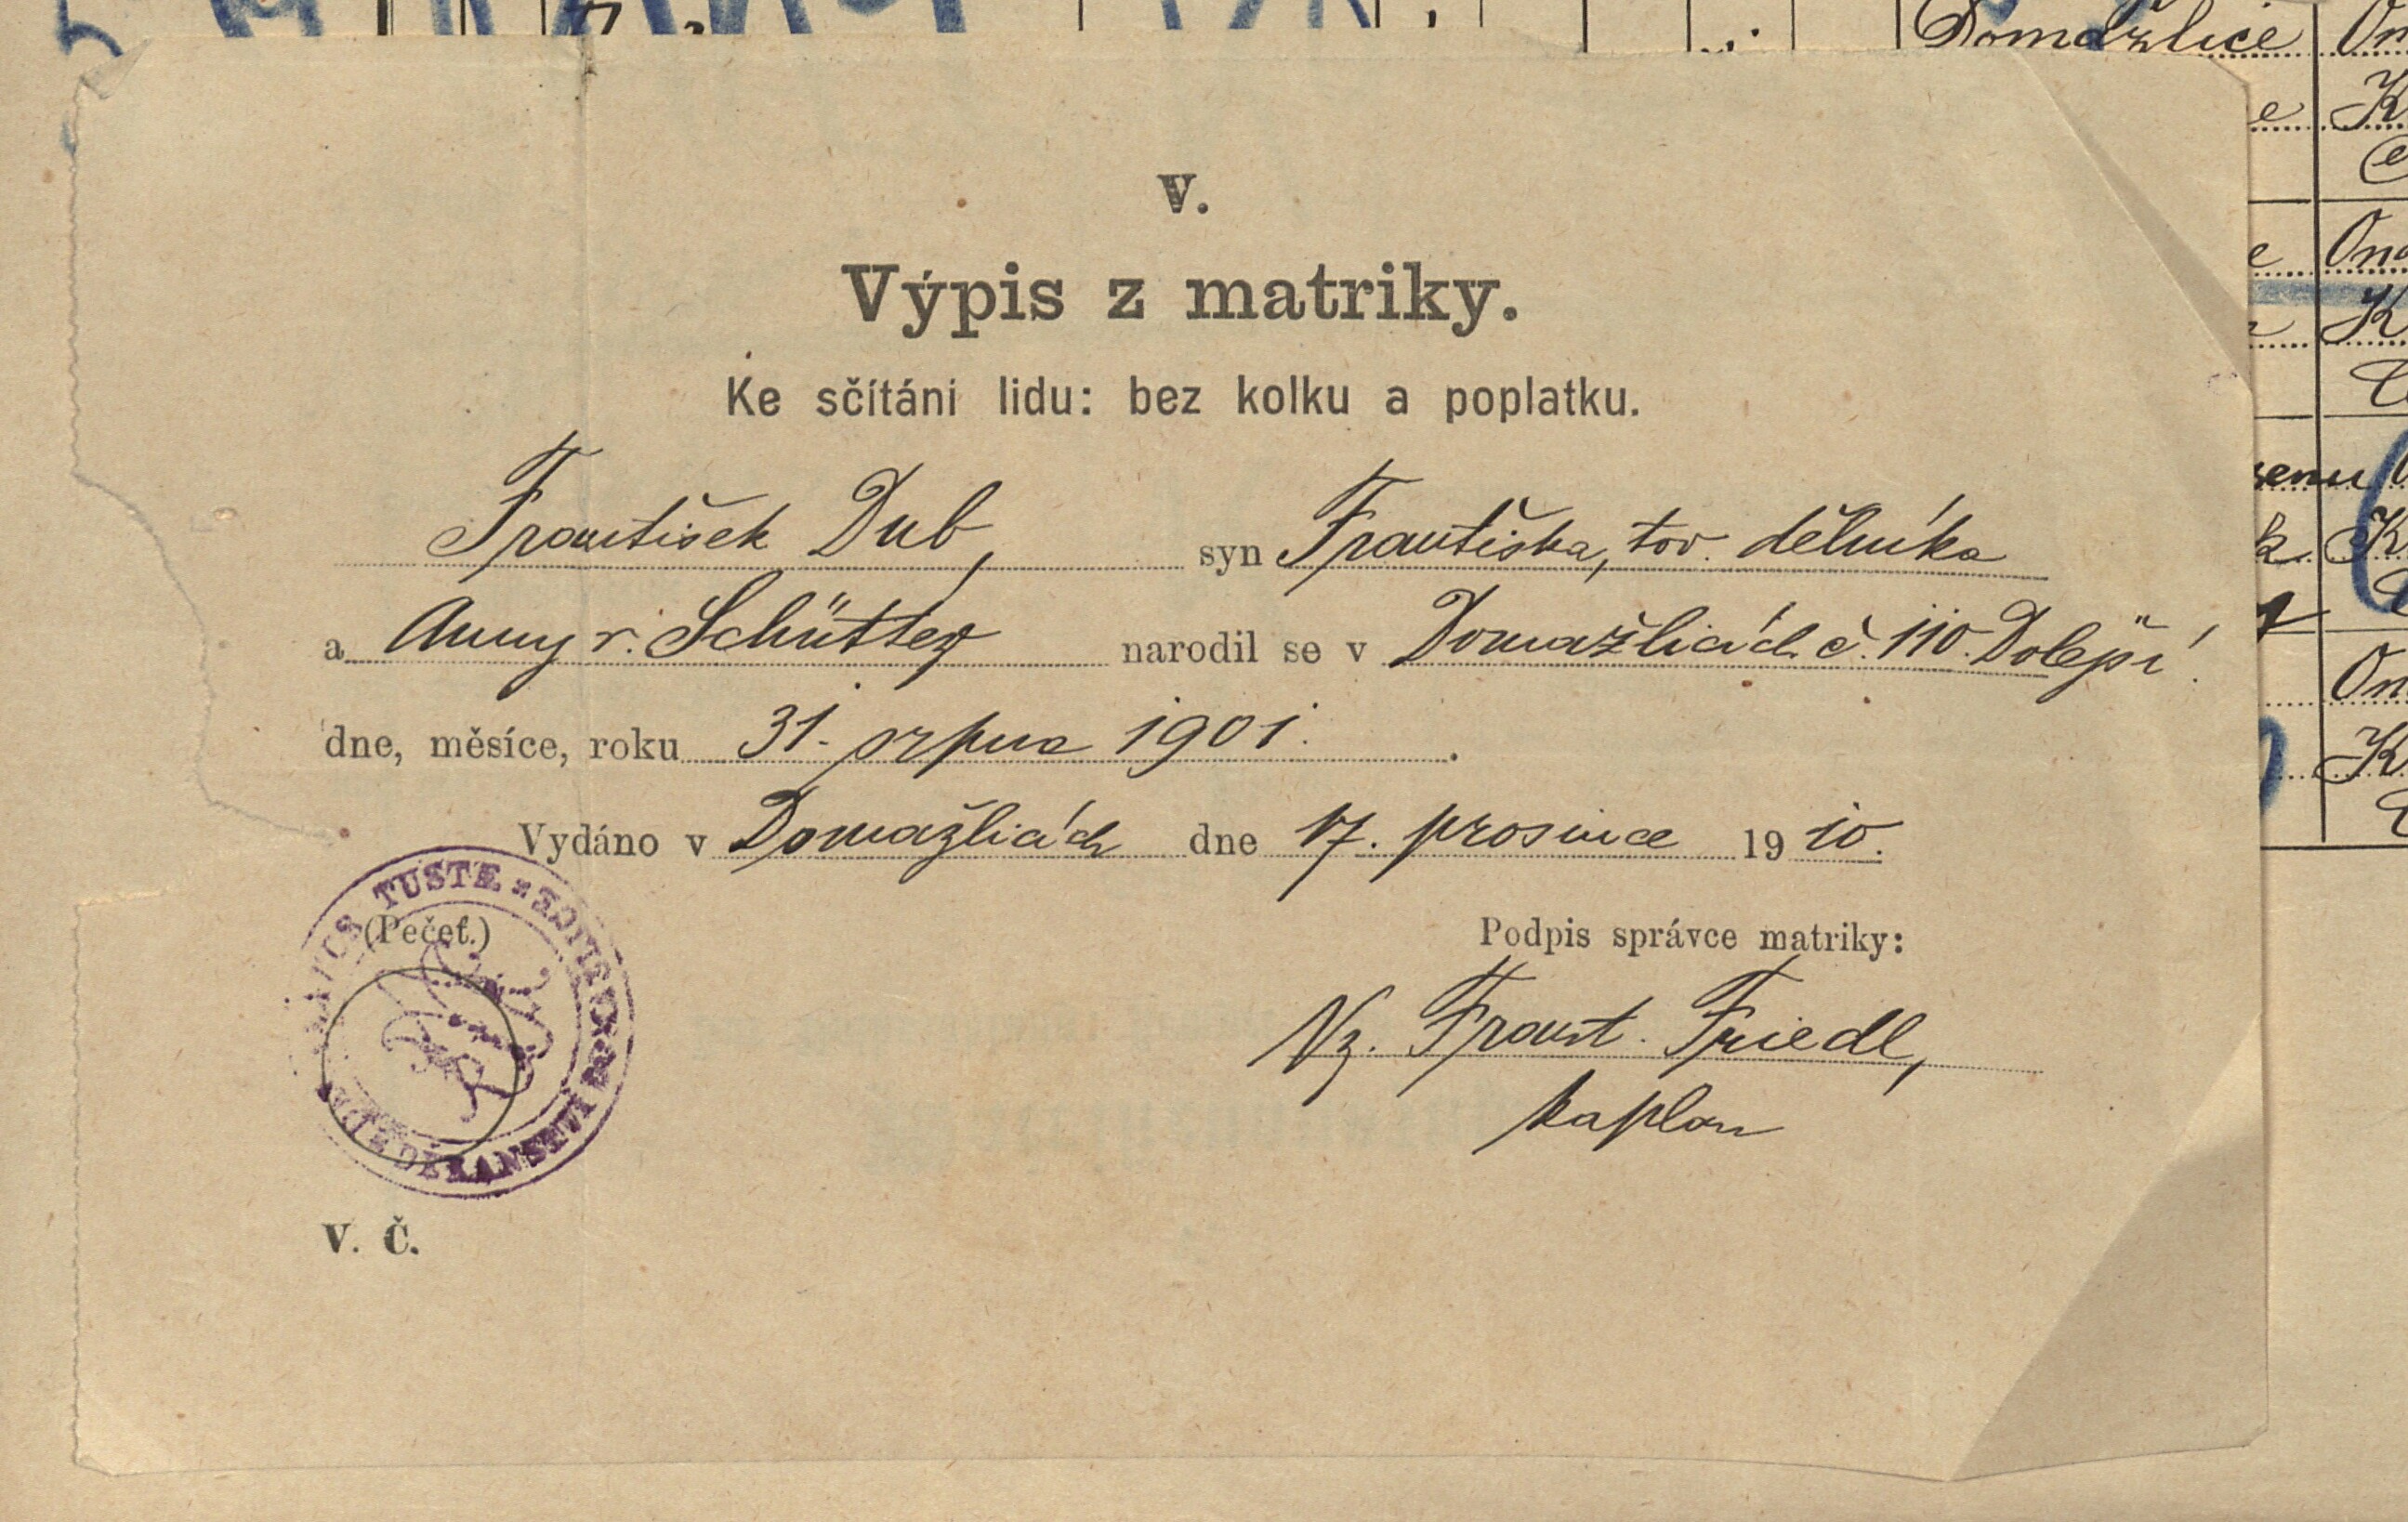 Domažlice
V.
Výpis z matriky.
Ke sčítání lidu: bez kolku a poplatku.
František Dub, syn Františka, tov. dělníka
a Anny r. Schütter narodil se v Domažlicích č. 110. Dolejší.
dne, měsíce, roku 31. srpna 1901.
Vydáno v Domažlicích dne 17. prosince 1910.
(Pečeť.)
TUSTE
Podpis správce matriky:
Nz. Frant. Friedl,
kaplan
V. Č.